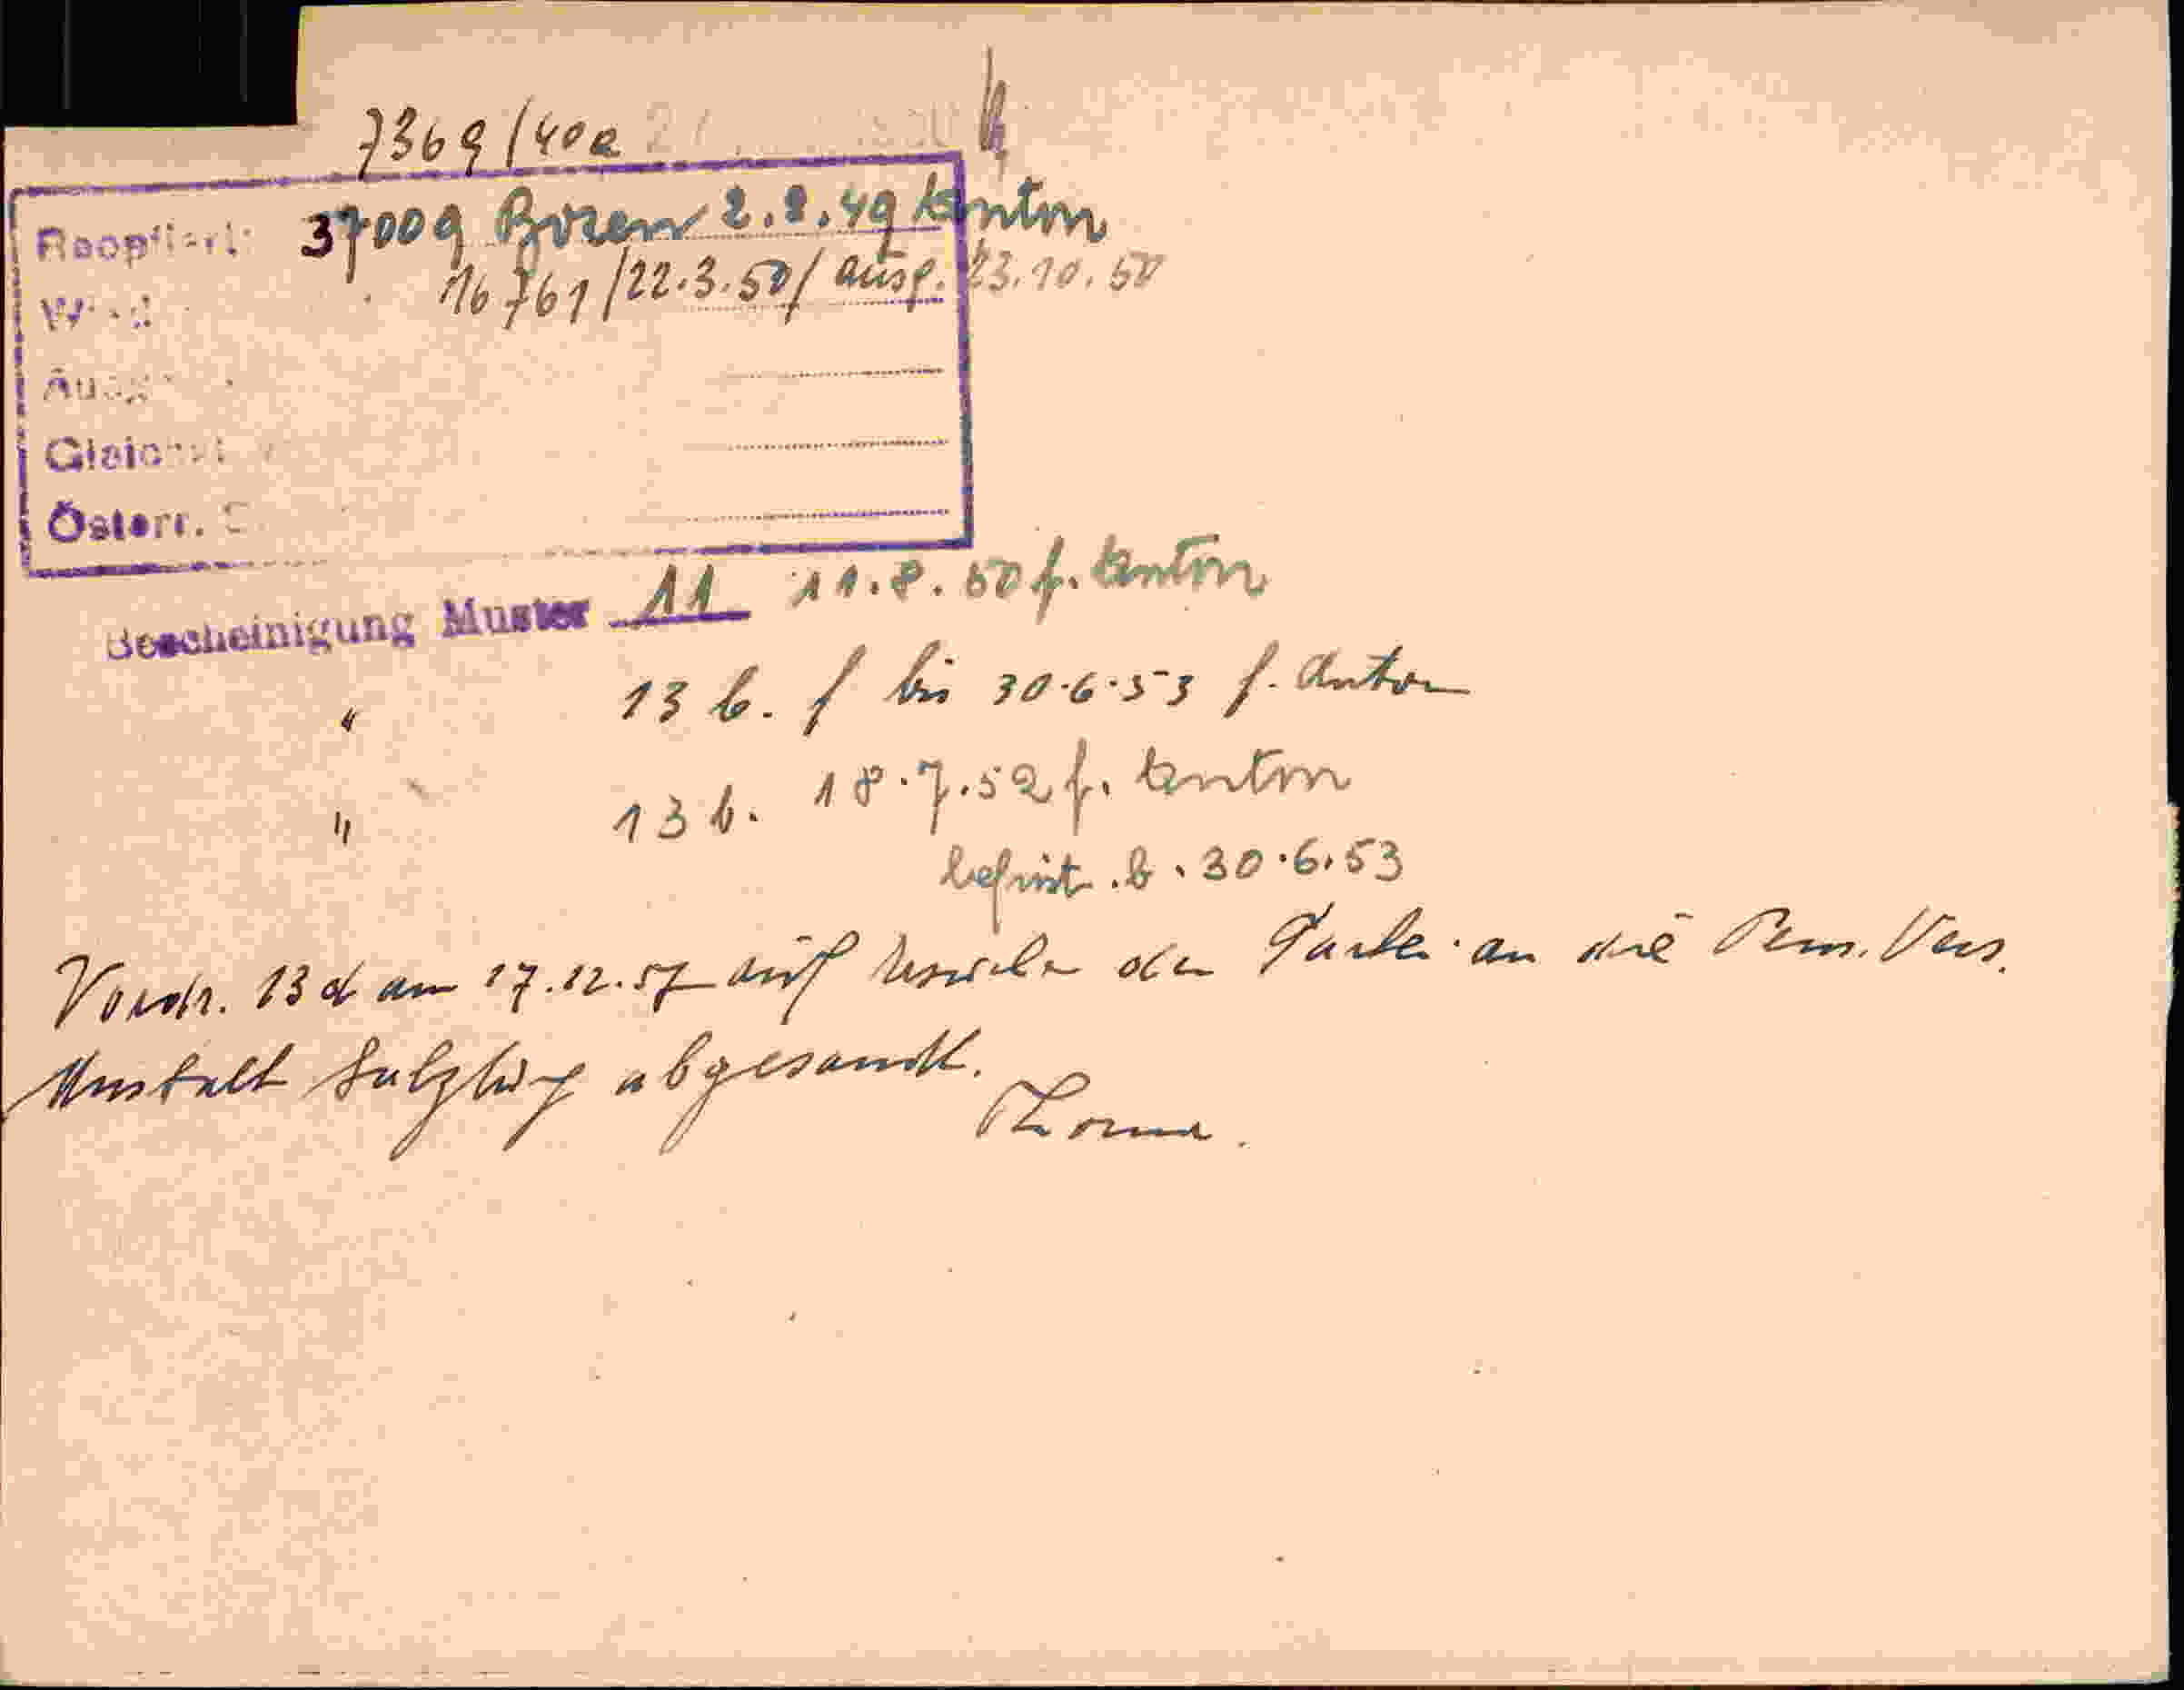 7369/40a
Reoptiert: 37009 Bozen 2.8.49 Anton
16761/22.3.50/ ausg. 23.10.50
Österr.
Bescheinigung Muster 11 11.8.50 f. Anton
" 13 b. f bis 30.6.53 f. Anton
" 13 b. 18.7.52 f. Anton
befrist. b. 30.6.53
Vordr. 13 d am 17.12.57 auf der Partei an die Pens. Vers.
Anstalt Salzburg abgesandt.